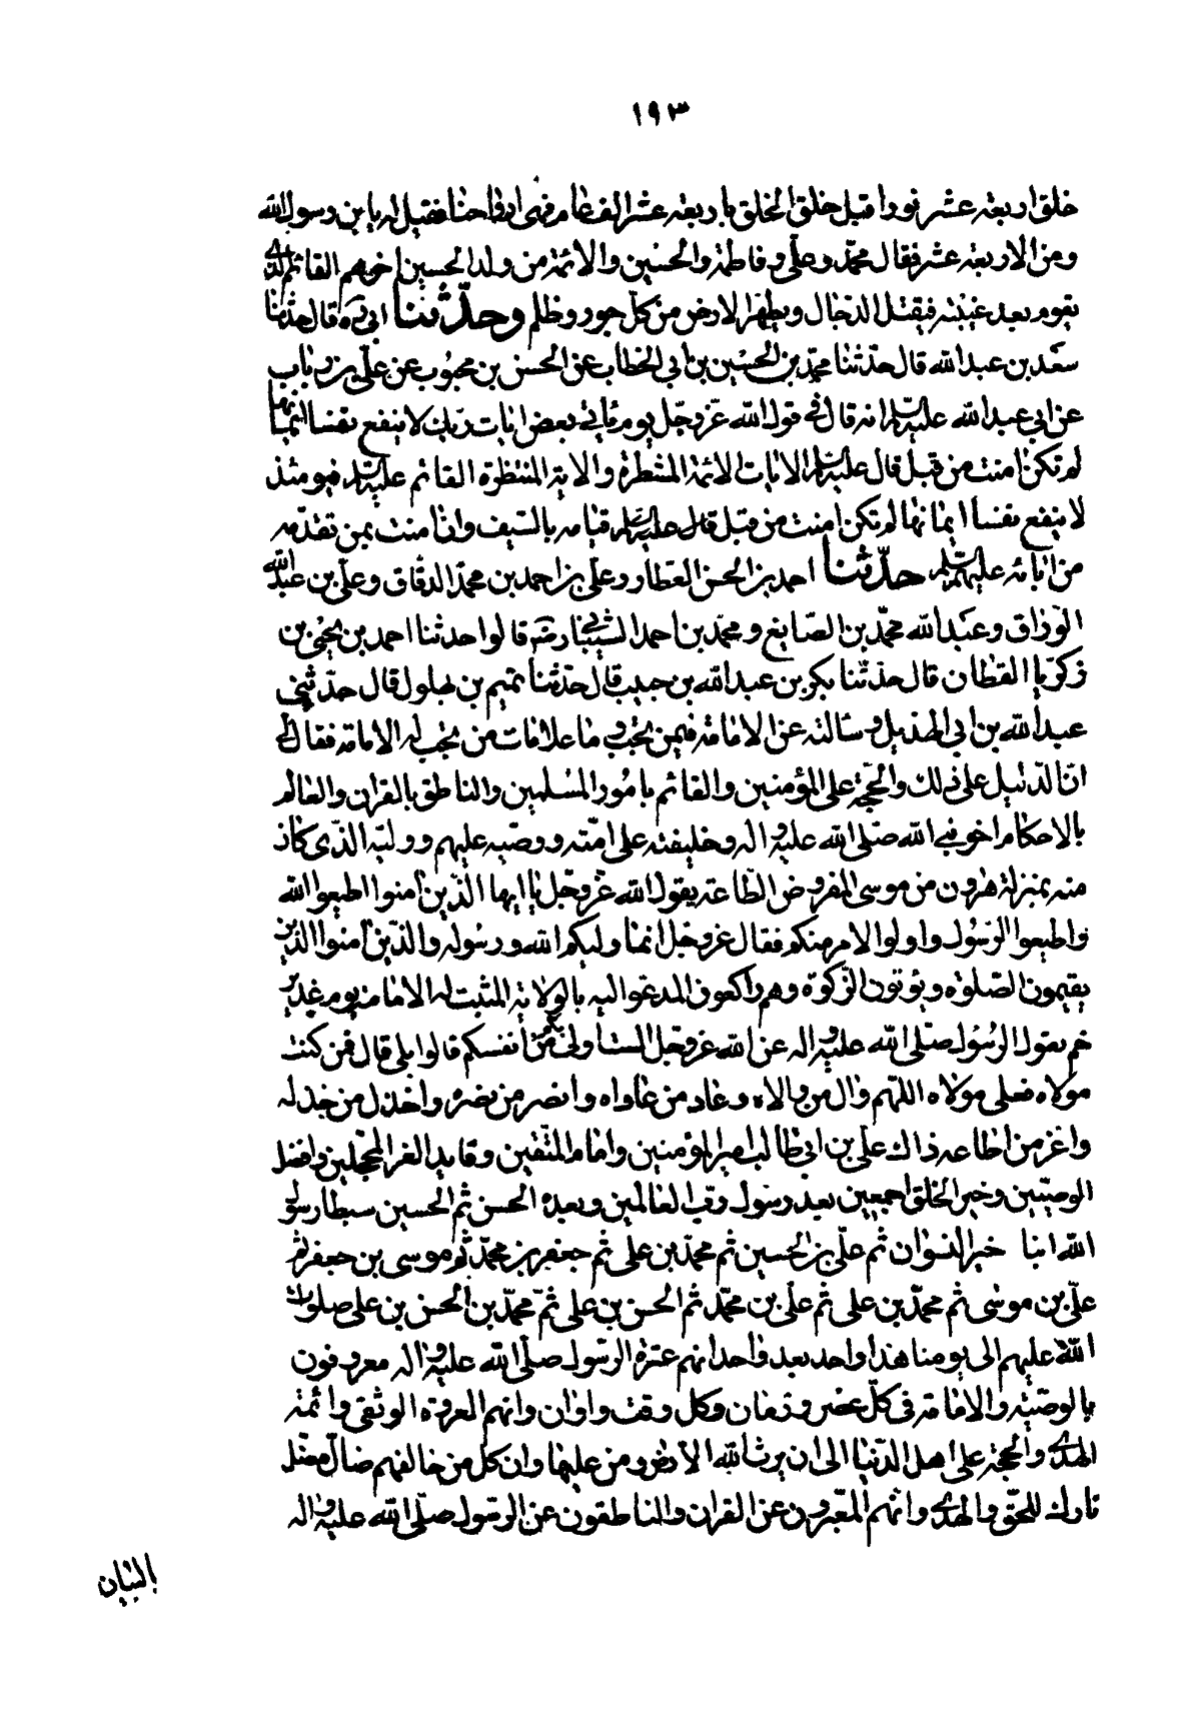 ١٩٣
خلق اربعة عشر نورا قبل خلق الخلق باربعة عشر الف عام فهي ارواحنا فقيل له يا بن رسول الله
ومن الاربعة عشر فقال محمّد وعلي وفاطمة والحسنين والائمة من ولد الحسين اخرهم القائم الذي
يقوم بعد غيبته فيقتل الدجال ويطهر الارض من كل جور وظلم وحدّثنا ابي ره قال حدثنا
سعد بن عبد الله قال حدّثنا محمد بن الحسين بن ابي الخطاب عن الحسن بن محبوب عن علي بن رئاب
عن ابي عبد الله عليه السلام انه قال في قول الله عز وجل يوم ياتي بعض ايات ربك لا ينفع نفسا ايمانها
لم تكن امنت من قبل قال عليه السلام الايات الائمة المنتظرة والاية المنتظرة القائم عليه السلام فيومئذ
لا ينفع نفسا ايمانها لم تكن امنت من قبل قال عليه السلام قيامه بالسيف وان امنت بمن تقدّمه
من ابائه عليهم السلام حدّثنا احمد بن الحسن القطار وعلي بن احمد بن محمد الدقاق وعلي بن عبد الله
الورّاق وعبد الله محمّد بن الصايغ ومحمّد بن احمد الشيباني رضه قالوا حدثنا احمد بن يحيى بن
زكريا القطان قال حدّثنا بكر بن عبد الله بن حبيب قال حدّثنا تميم بن بهلول قال حدّثني
عبد الله بن ابي الهذيل وسالته عن الامامة فيمن تجب وما علامات من تجب له الامامة فقال لي
انّ الدّليل على ذلك والحجّة على المؤمنين والقائم بامور المسلمين والناطق بالقران والعالم
بالاحكام اخو نبي الله صلّى الله عليه واله وخليفته على امّته ووصيّه عليهم ووليّه الذّى كان
منه بمنزلة هرون من موسى المفروض الطاعة بقول الله عزّ وجلّ يا ايها الذين امنوا اطيعوا الله
واطيعوا الرسول واولوا الامر منكم فقال عز وجل انما وليكم الله ورسوله والذين امنوا الذين
يقيمون الصّلوة ويؤتون الزكوة وهم راكعون المدعو اليه بالولاية المثبت له الامامة يوم غدير
خم بقول الرسول صلى الله عليه واله عن الله عز وجل الست اولى بكم من انفسكم قالوا بلى قال فمن كنت
مولاه فعلي مولاه اللهم وال من والاه وعاد من عاداه وانصر من نصره واخذل من خذله
واعز من اطاعه ذاك علي بن ابي طالب امير المؤمنين وامام المتّقين وقايد الغر المحجلين وافضل
الوصيّين وخير الخلق اجمعين بعد رسول رب العالمين وبعده الحسن ثم الحسين سبطا رسول
الله ابنا خير النسوان ثم علي بن الحسين ثم محمّد بن علي ثم جعفر بن محمّد ثم موسى بن جعفر ثم
علي بن موسى ثم محمّد بن علي ثم علي بن محمّد ثم الحسن بن علي ثمّ محمّد بن الحسن بن علي صلوات
الله عليهم الى يومنا هذا واحد بعد واحد انهم عترة الرّسول صلّى الله عليه واله معروفون
بالوصيّة والامامة في كل عصر وزمان وكل وقت واوان وانهم العروة الوثقى وائمة
الهدى والحجة على اهل الدّنيا الى ان يرث الله الارض ومن عليها وان كل من خالفهم ضال مضل
تارك للحقّ والهدى وانهم المعبّرون عن القران والناطقون عن الرسول صلّى الله عليه واله
البيان